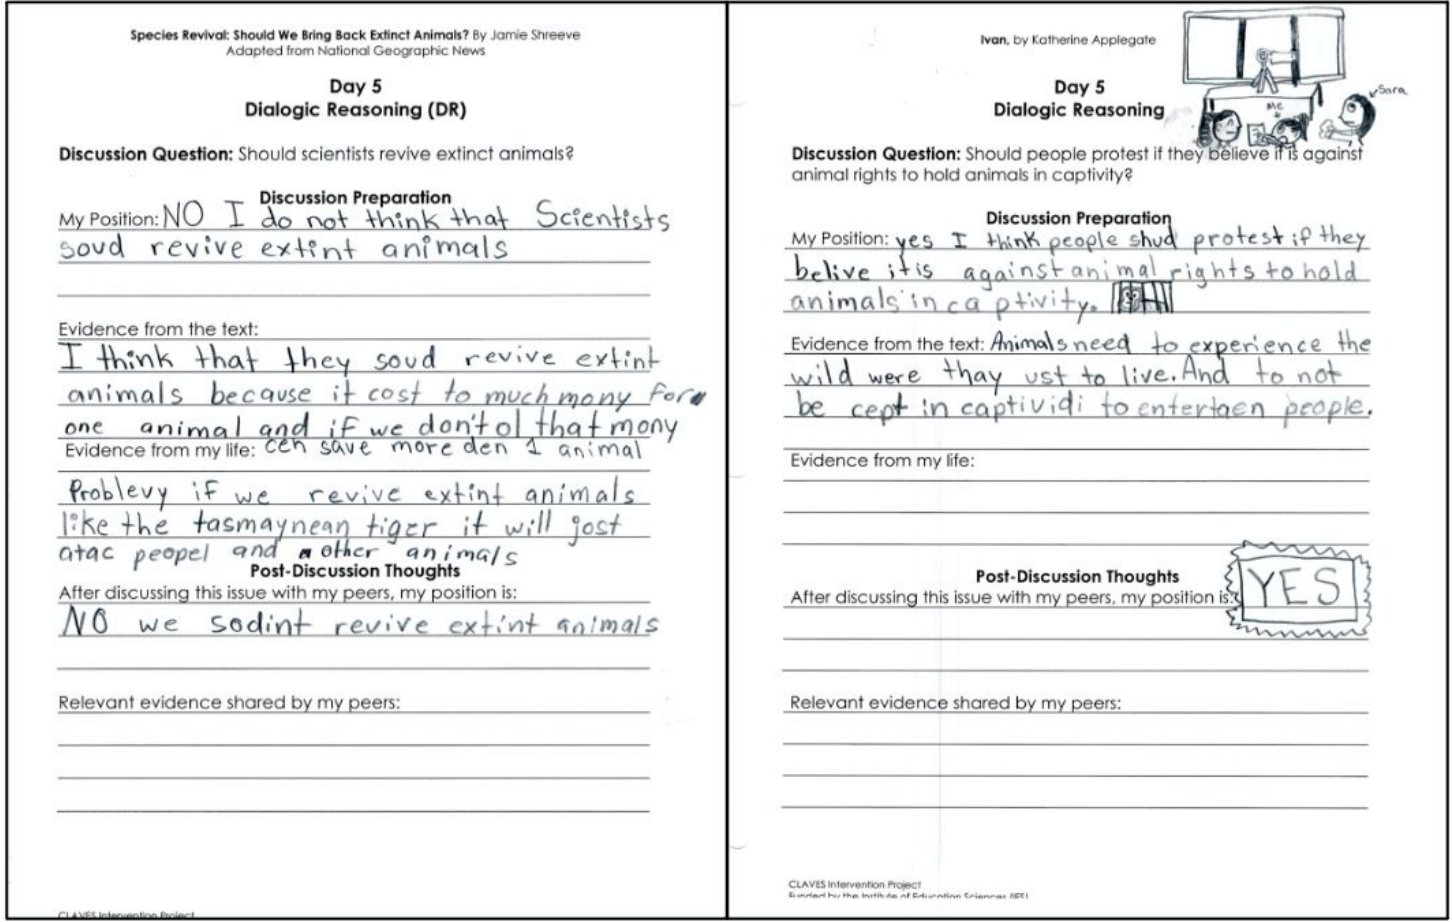 Species Revival: Should We Bring Back Extinct Animals? By Jamie Shreeve
Adapted from National Geographic News
Day 5
Dialogic Reasoning (DR)
Discussion Question: Should scientists revive extinct animals?
Discussion Preparation
My Position: NO I do not think that Scientists
soud revive extint animals
Evidence from the text:
I think that they soud revive extint
animals because it cost to much mony for
one animal and if we don't ol that mony
Evidence from my life: cen save more den 1 animal
Problevy if we revive extint animals
like the tasmaynean tiger it will jost
atac peopel and other animals
Post-Discussion Thoughts
After discussing this issue with my peers, my position is:
NO we sodint revive extint animals
Relevant evidence shared by my peers:
CLAVES Intervention Project
Ivan, by Katherine Applegate
Day 5
Dialogic Reasoning
Sara
Me
Discussion Question: Should people protest if they believe it is against
animal rights to hold animals in captivity?
Discussion Preparation
My Position: yes I think people shud protest if they
belive it is against animal rights to hold
animals in captivity.
Evidence from the text: Animals need to experience the
wild were thay ust to live. And to not
be cept in captividi to entertaen people.
Evidence from my life:
Post-Discussion Thoughts
After discussing this issue with my peers, my position is: YES
Relevant evidence shared by my peers:
CLAVES Intervention Project
Funded by the Institute of Education Sciences (IES)